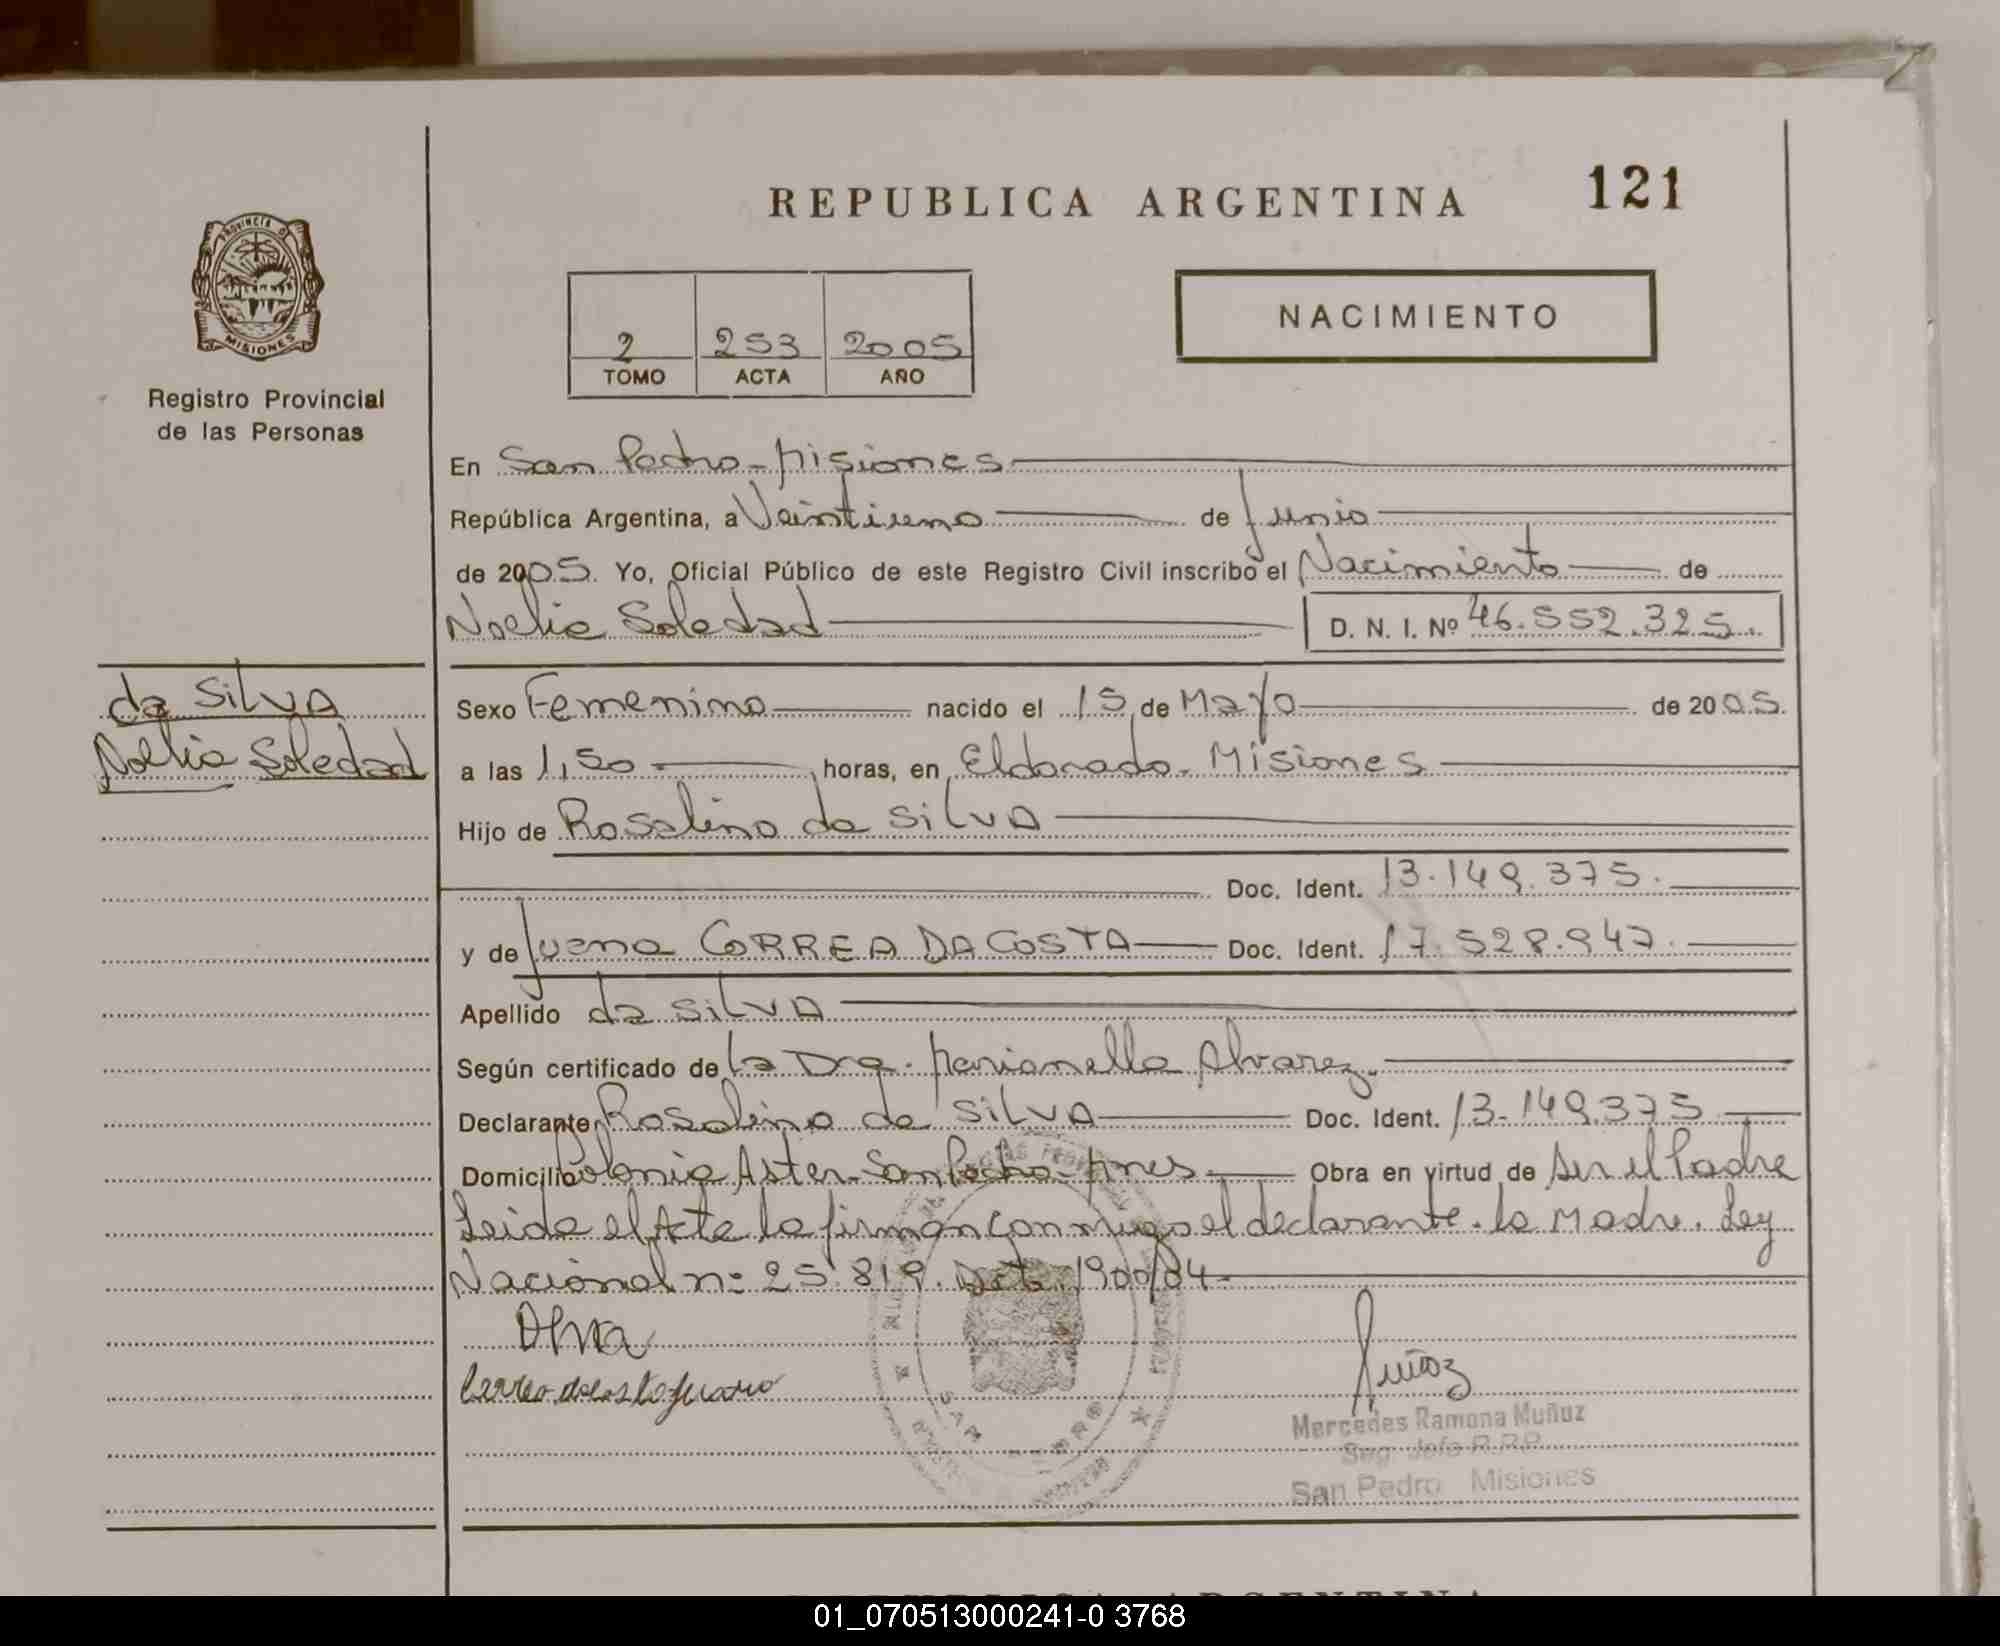 REPUBLICA ARGENTINA 121
PROVINCIA D
MISIONES
Registro Provincial
de las Personas
NACIMIENTO
2 253 2005
TOMO ACTA AÑO
En San Pedro - Misiones
República Argentina, a Veintiuno de Junio
de 2005. Yo, Oficial Público de este Registro Civil inscribo el Nacimiento de
Noelia Soledad D. N. I. Nº 46.552.325.
da SiLVA
Noelia Soledad
Sexo Femenino nacido el 15 de Mayo de 2005.
a las 1,50 horas, en Eldorado - Misiones
Hijo de Rosalino da SiLVA
Doc. Ident. 13.149.375.
y de Juana CORREA DA COSTA Doc. Ident. 17.528.947.
Apellido da SiLVA
Según certificado de la Dra. Marianella Alvarez.
Declarante Rosalino da SiLVA Doc. Ident. 13.149.375
Domicilio Colonia Aster - San Pedro - Mnes Obra en virtud de Ser el Padre
Leida el Acta la firman conmigo el declarante. la Madre. Ley
Nacional nº 25.819. Dcto. 1900/04
Muñoz
Mercedes Ramona Muñoz
Seg. Jefe R.P.P.
San Pedro Misiones
SAN PEDRO
REPUBLICA ARGENTINA
01_070513000241-0 3768